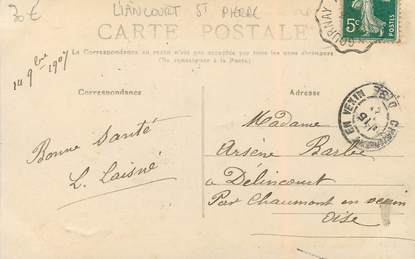 30€
LIANCOURT ST PIERRE
CARTE POSTALE
La Correspondance au recto n'est pas acceptée par tous les pays étrangers
(Se renseigner à la Poste)
GOURNAY
5c
POSTES
9bre 1907
Correspondance
Adresse
Bonne Santé
L. Laisné
Madame
Arsène Barbé
a Délincourt
Par Chaumont en vexin
Oise
CHAUMONT EN VEXIN OISE